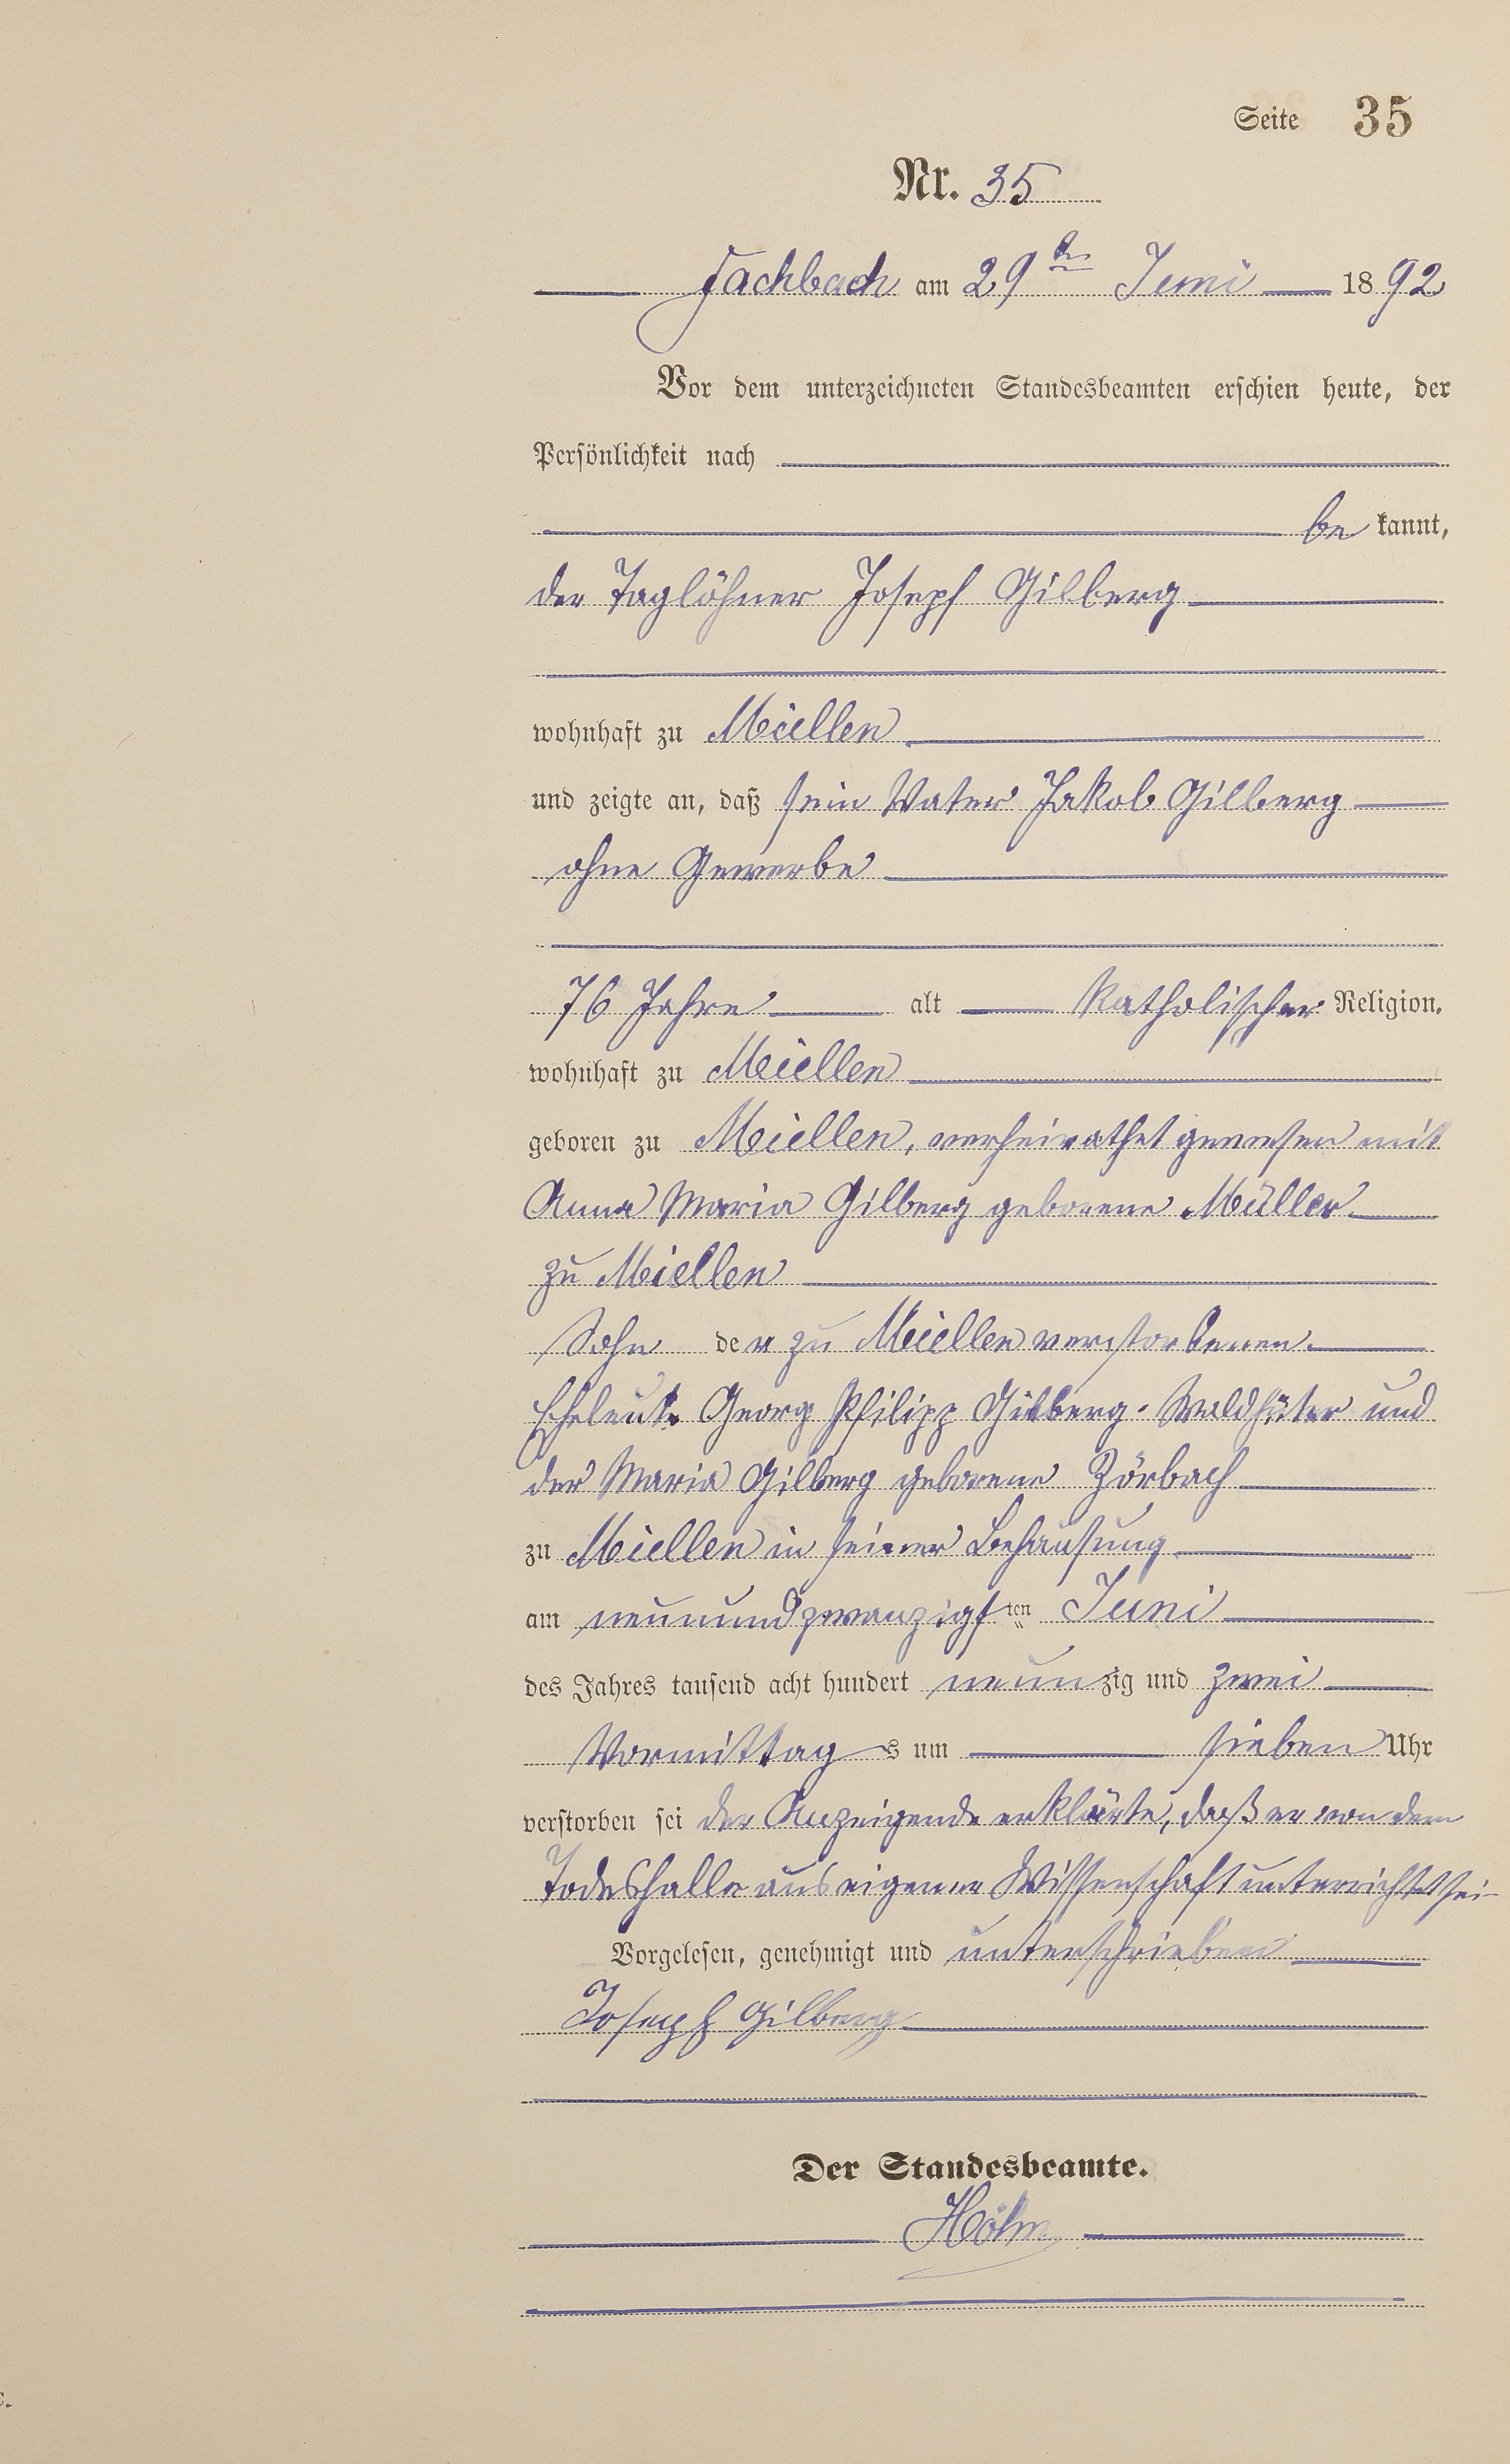 Seite 35
Nr. 35
Fachbach am 29ten Juni 1892
Vor dem unterzeichneten Standesbeamten erschien heute, der
Persönlichkeit nach
be kannt,
der Taglöhner Joseph Gilberg
wohnhaft zu Miellen
und zeigte an, daß sein Vater Jakob Gilberg
ohne Gewerbe
76 Jahre alt katholischer Religion,
wohnhaft zu Miellen
geboren zu Miellen, verheirathet gewesen mit
Anna Maria Gilberg geborene Müller
zu Miellen
Sohn der zu Miellen verstorbenen
Eheleute Georg Philipp Gilberg, Waldhüter und
der Maria Gilberg geborene Zörbach
zu Miellen in seiner Behausung
am neunundzwanzigsten Juni
des Jahres tausend acht hundert neunzig und zwei
Vormittags um sieben Uhr
verstorben sei der Anzeigende erklärte, daß er von dem
Todesfalle aus eigener Wissenschaft unterrichtet sei
Vorgelesen, genehmigt und unterschrieben
Joseph Gilberg
Der Standesbeamte.